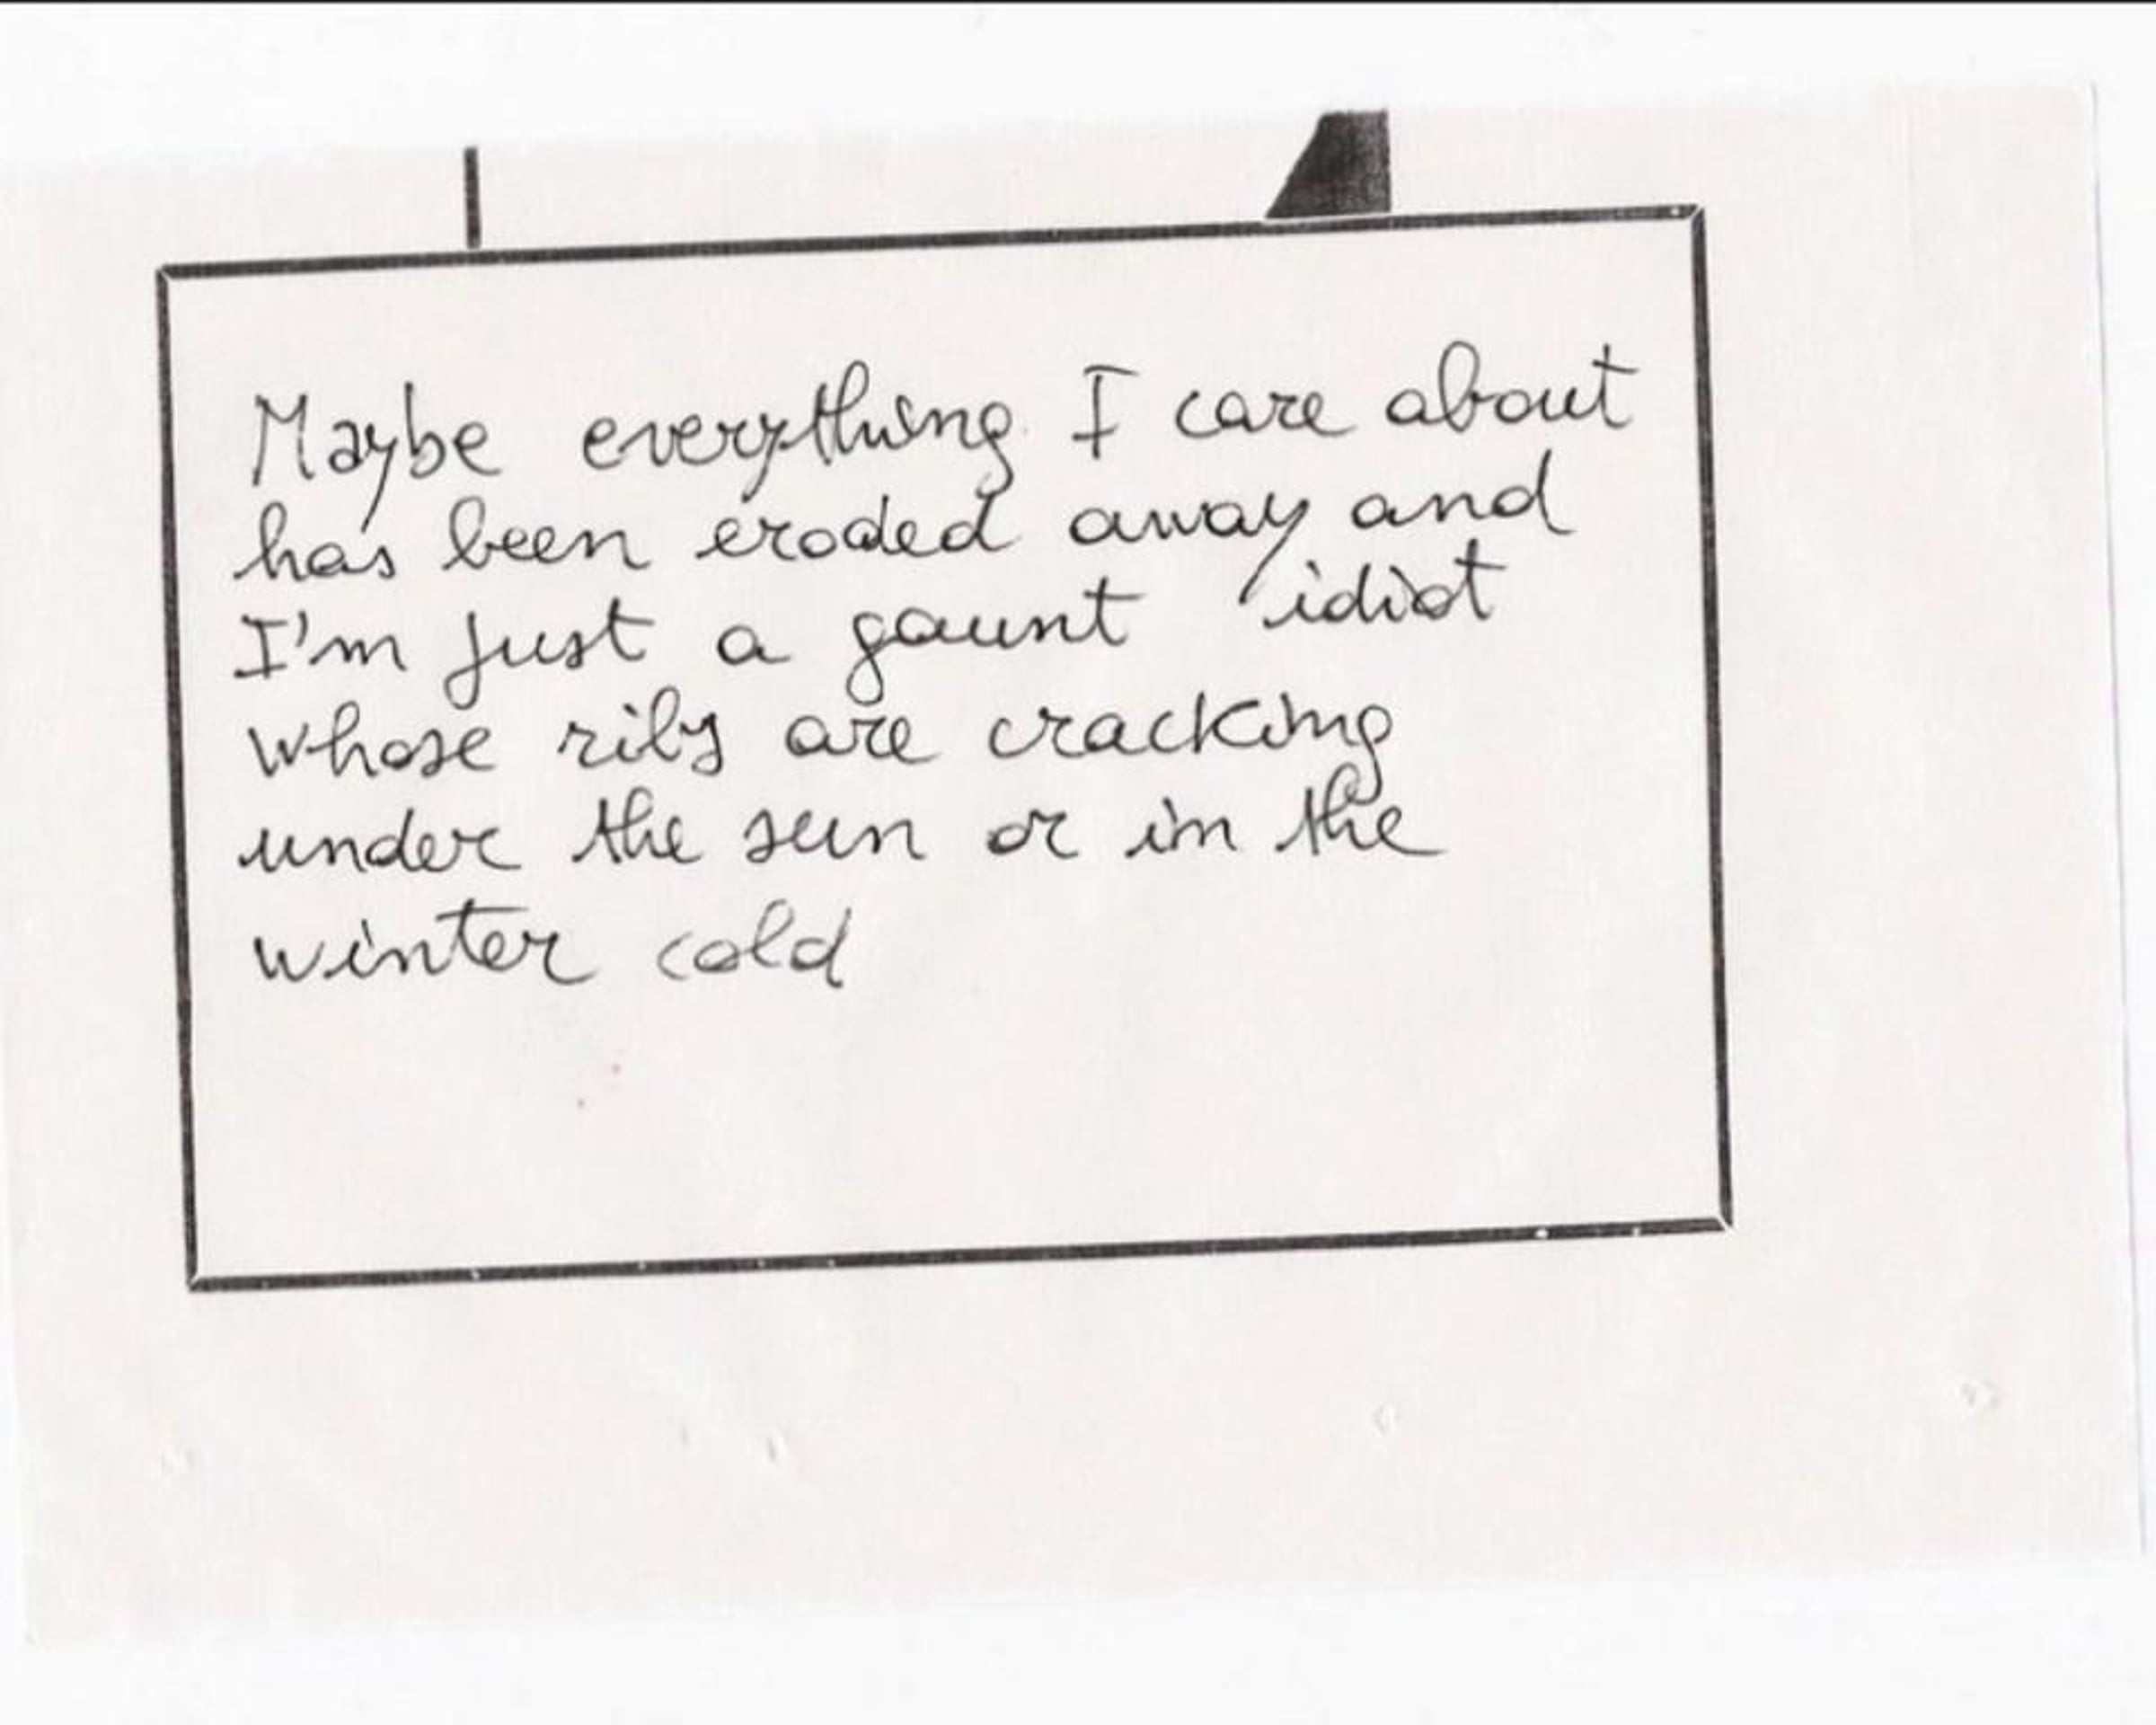 Maybe everything I care about
has been eroded away and
I'm just a gaunt idiot
whose ribs are cracking
under the sun or in the
winter cold